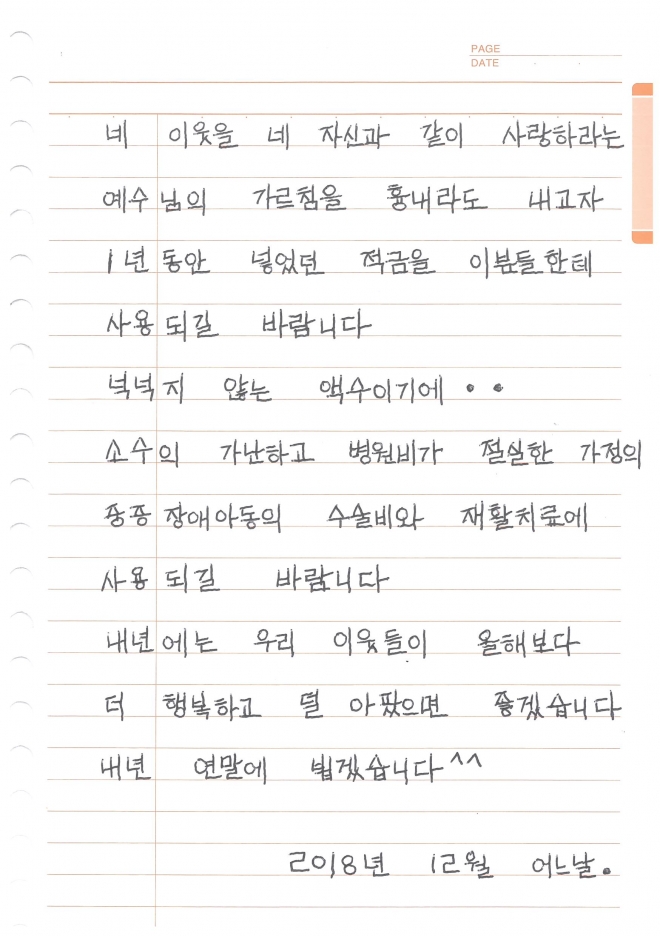 PAGE
DATE
네 이웃을 네 자신과 같이 사랑하라는
예수님의 가르침을 흉내라도 내고자
1년 동안 넣었던 적금을 이분들한테
사용되길 바랍니다
넉넉지 않는 액수이기에 • •
소수의 가난하고 병원비가 절실한 가정의
중증 장애아동의 수술비와 재활치료에
사용되길 바랍니다
내년에는 우리 이웃들이 올해보다
더 행복하고 덜 아팠으면 좋겠습니다
내년 연말에 뵙겠습니다 ^^
2018년 12월 어느날.